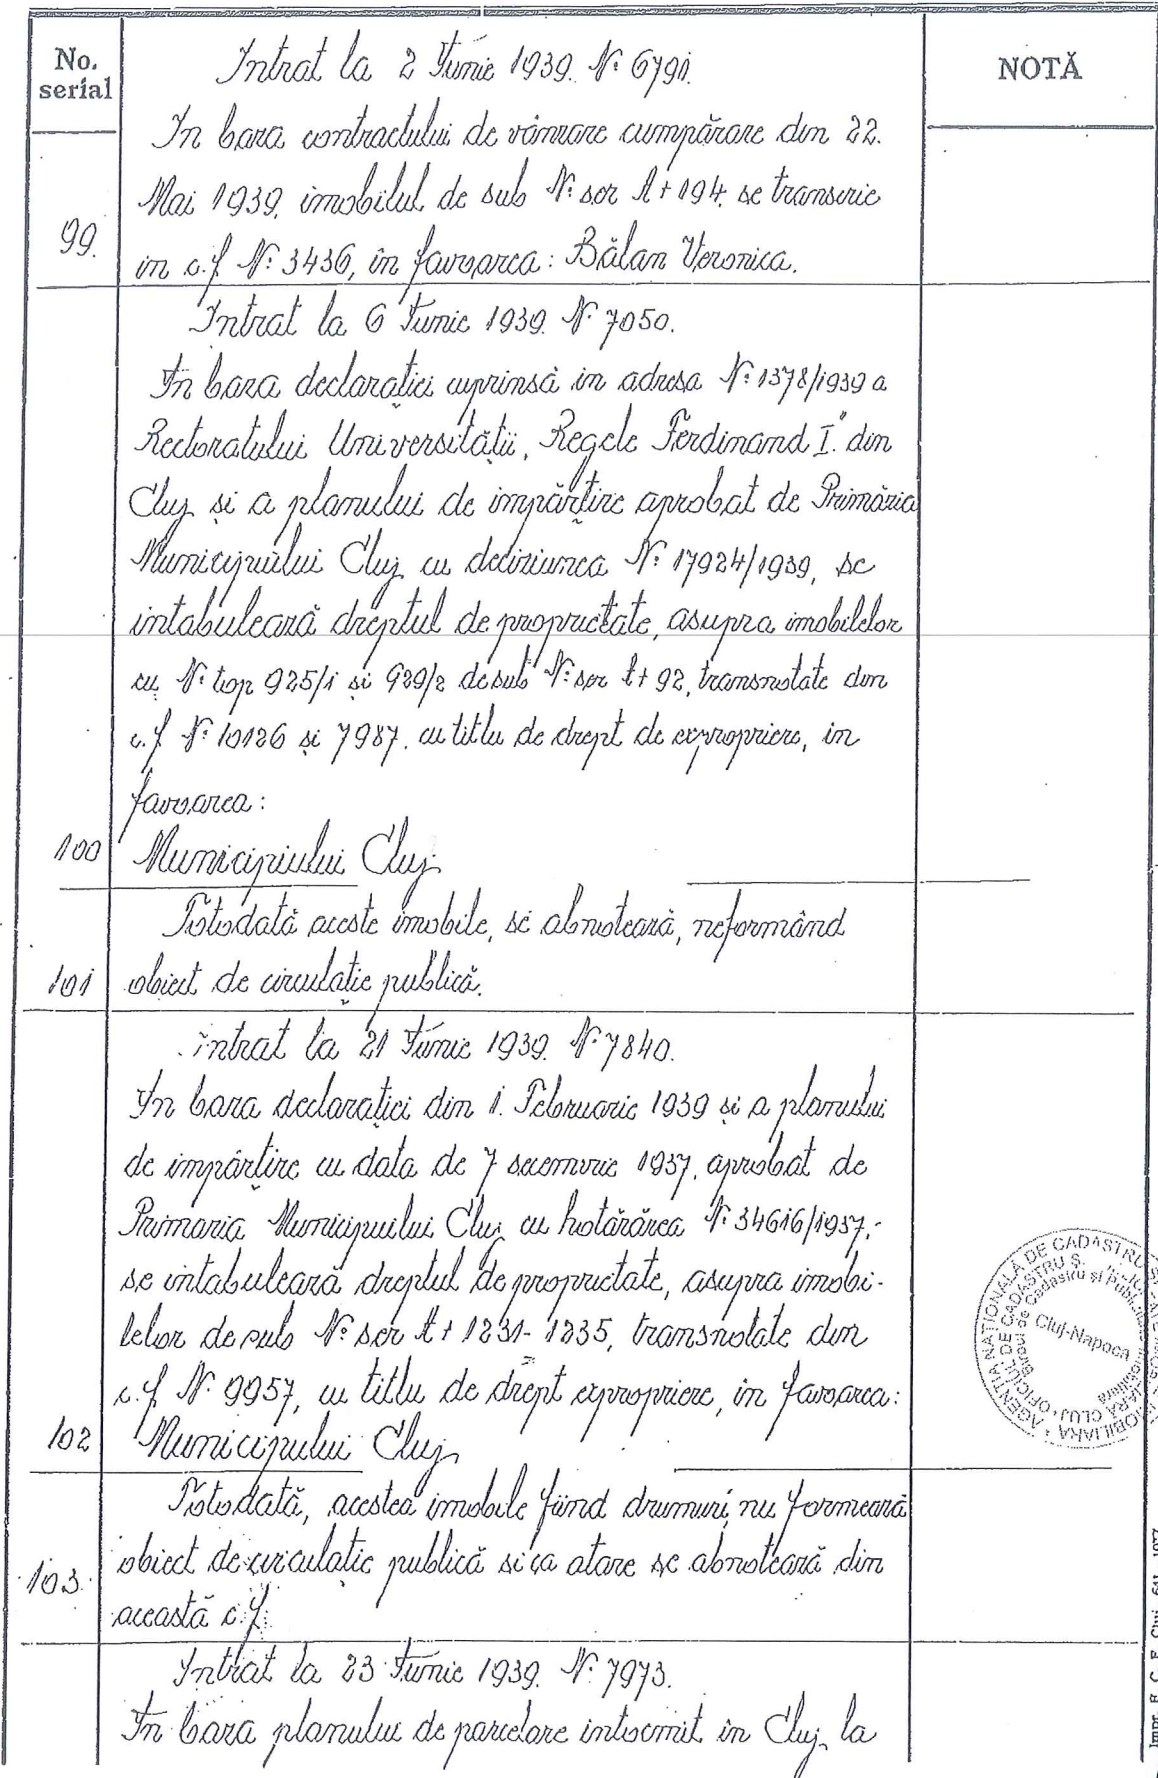 No.
serial
NOTĂ
Intrat la 2 Iunie 1939. Nº 6791.
In baza contractului de vânzare cumpărare din 22.
Mai 1939, imobilul de sub Nº ser A + 194. se transcrie
99. in c.f Nº 3436, în favoarea: Bălan Veronica.
Intrat la 6 Iunie 1939. Nº 7050.
In baza declarației cuprinsă in adresa Nº 1378/1939 a
Rectoratului Universității „Regele Ferdinand I." din
Cluj și a planului de împărțire aprobat de Primăria
Municipiului Cluj cu deciziunea Nº 17924/1939, se
intabulează dreptul de proprietate, asupra imobilelor
cu Nº top 925/1 și 929/2 de sub Nº ser A + 92, transnotate din
c.f Nº 10126 și 7987. cu titlu de drept de expropriere, in
favoarea:
100 Municipiului Cluj
Totodată aceste imobile, se abnotează, neformând
101 obiect de circulație publică.
intrat la 21 Iunie 1939. Nº 7840.
In baza declarației din 1. Februarie 1939 și a planului
de împărțire cu data de 7 decemvrie 1937. aprobat de
Primaria Municipiului Cluj cu hotărârea Nº 34616/1937.
se intabulează dreptul de proprietate, asupra imobi-
lelor de sub Nº ser A + 1231-1235, transnotate din
c.f Nº 9957, cu titlu de drept expropriere, in favoarea:
102 Municipiului Cluj
Totodată, acestea imobile fiind drumuri, nu formează
103. obiect de circulație publică și ca atare se abnotează din
această c.f.
Intrat la 23 Iunie 1939. Nº 7973.
In baza planului de parcelare intocmit in Cluj, la
AGENȚIA NAȚIONALĂ DE CADASTRU ȘI
OFICIUL DE CADASTRU Ș.
IMOBILIARĂ CLUJ
Biroul de Cadastru și Publicitate Imobiliară
Cluj-Napoca
Impr. F. C. F. Cluj. 641-1937